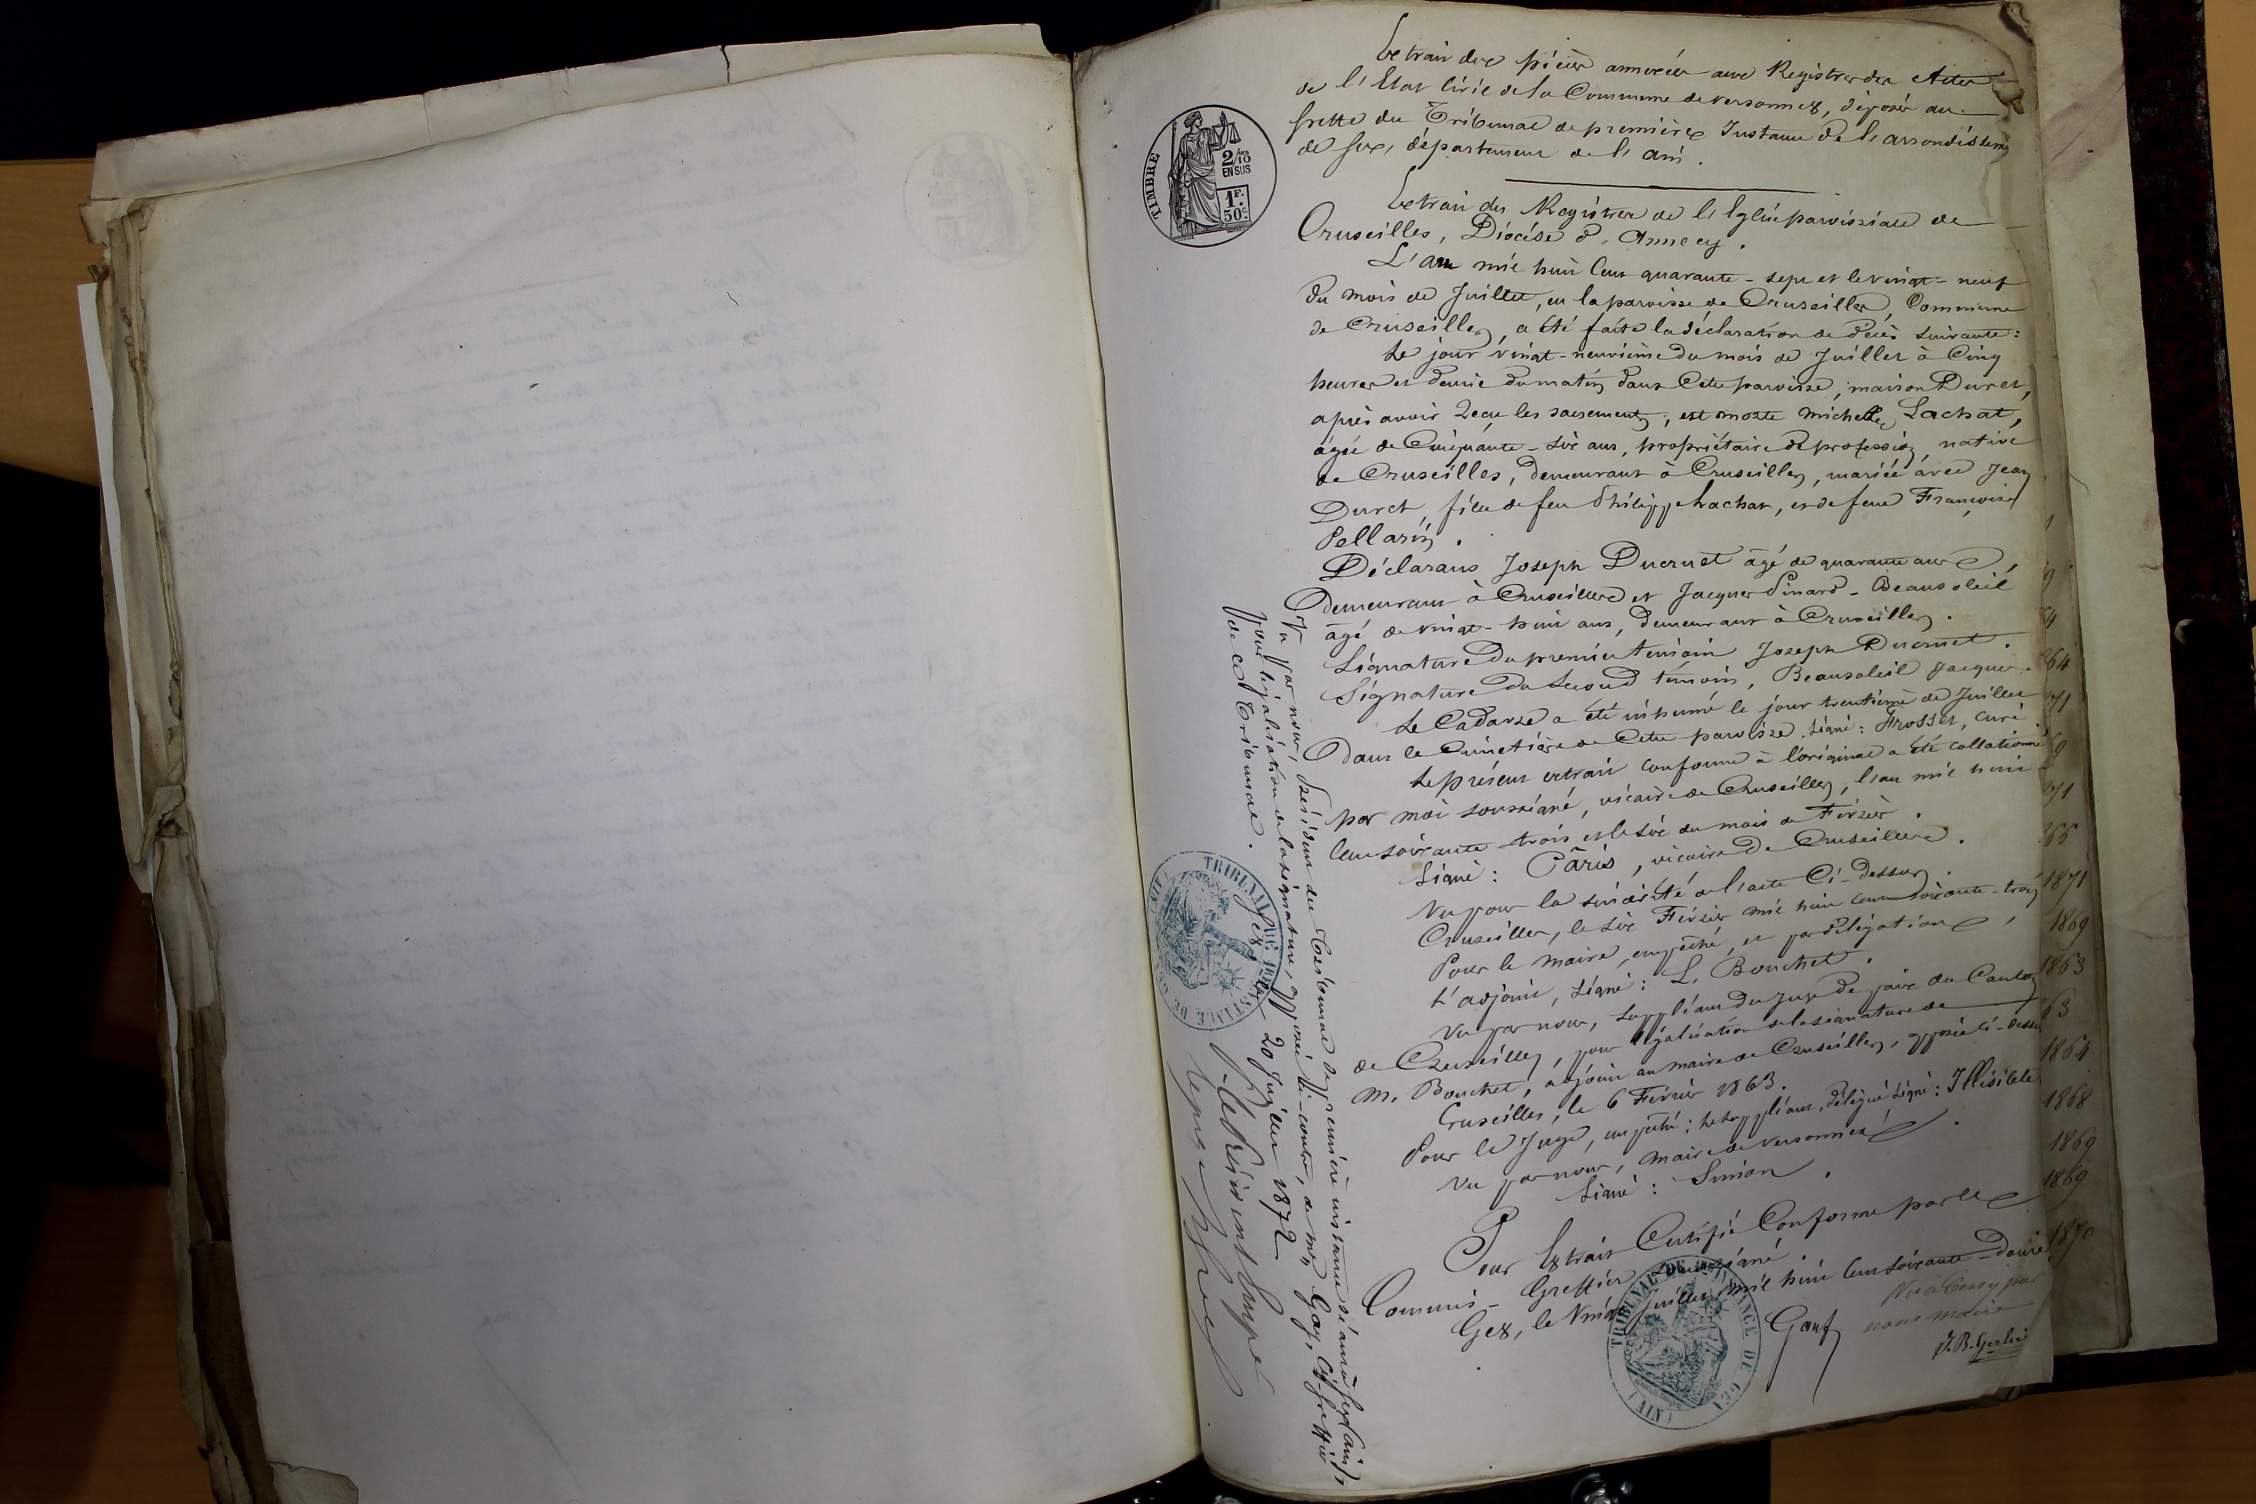 Extrait des pièces annexées aux Registres des Actes
de l'Etat Civil de la Commune de Versonnex, déposés au
Greffe du Tribunal de première Instance de l'arrondissem
de Gex, département de l'Ain.
TIMBRE
2/10
EN SUS
1F.
50c.
Extrait des Registres de l'Eglise paroissiale de
Cruseilles, Diocèse d'Annecy.
L'an mil huit Cent quarante-sept et le vingt-neuf
du mois de Juillet, en la paroisse de Cruseilles, Commune
de Cruseilles, a été faite la déclaration de décès suivante:
Le jour vingt-neuvième du mois de Juillet à Cinq
heures et demie du matin dans Cette paroisse, maison Duret,
après avoir reçu les sacrements, est morte Michelle Lachat,
âgée de Cinquante-six ans, propriétaire de profession, native
de Cruseilles, demeurant à Cruseilles, mariée avec Jean
Duret, fille de feu Philippe Lachat, et de feue Françoise
Pellarin.
Déclarans Joseph Ducruet âgé de quarante ans,
demeurant à Cruseilles et Jacques Pinard-Beausoleil
âgé de vingt-huit ans, demeurant à Cruseilles.
Signature du premier témoin Joseph Ducruet.
Signature du second témoin, Beausoleil Jacques.
Le Cadavre a été inhumé le jour trentième de Juillet
Dans le Cimetière de Cette paroisse. Signé: Frossel, curé.
Le présent extrait conforme à l'original a été collationné
par moi soussigné, vicaire de Cruseilles, l'an mil huit
Cent soixante-trois et le six du mois de Février.
Signé: Pâris, vicaire de Cruseilles.
Vu pour la sincérité de l'acte Ci-dessus.
Cruseilles, le six Février mil huit cent soixante-trois
Pour le Maire, empêché, et par délégation,
L'adjoint, signé: L. Bouchet.
Vu par nous, suppléant du Juge de paix du Canton
de Cruseilles, pour légalisation de la signature de
M. Bouchet, adjoint au maire de Cruseilles, apposée ci-dessus
Cruseilles, le 6 Février 1863.
Pour le Juge, empêché; le suppléant, délégué signé: Illisible
Vu par nous, maire de Versonnex.
Signé: Simon.
Pour Extrait Certifié Conforme par le
Commis-Greffier soussigné.
Gex, le Vingt Juillet mil huit Cent soixante-douze
Gauf
Vu à Cessy par
nous maire
J.B. Gerlier
TRIBUNAL DE 1RE INSTANCE DE GEX
(AIN)
Vu par nous, Président du Tribunal de première instance séant à Gex (Ain),
pour légalisation de la signature, apposée ci-contre, de Mr Gay, Cis-Greffier
de ce Tribunal.
Gex le 20 Juillet 1872
P. le Président Empé
TRIBUNAL DE 1RE INSTANCE DE GEX (AIN)
64
71
9
71
1871
1869
1863
63
1864
1868
1869
1869
1870